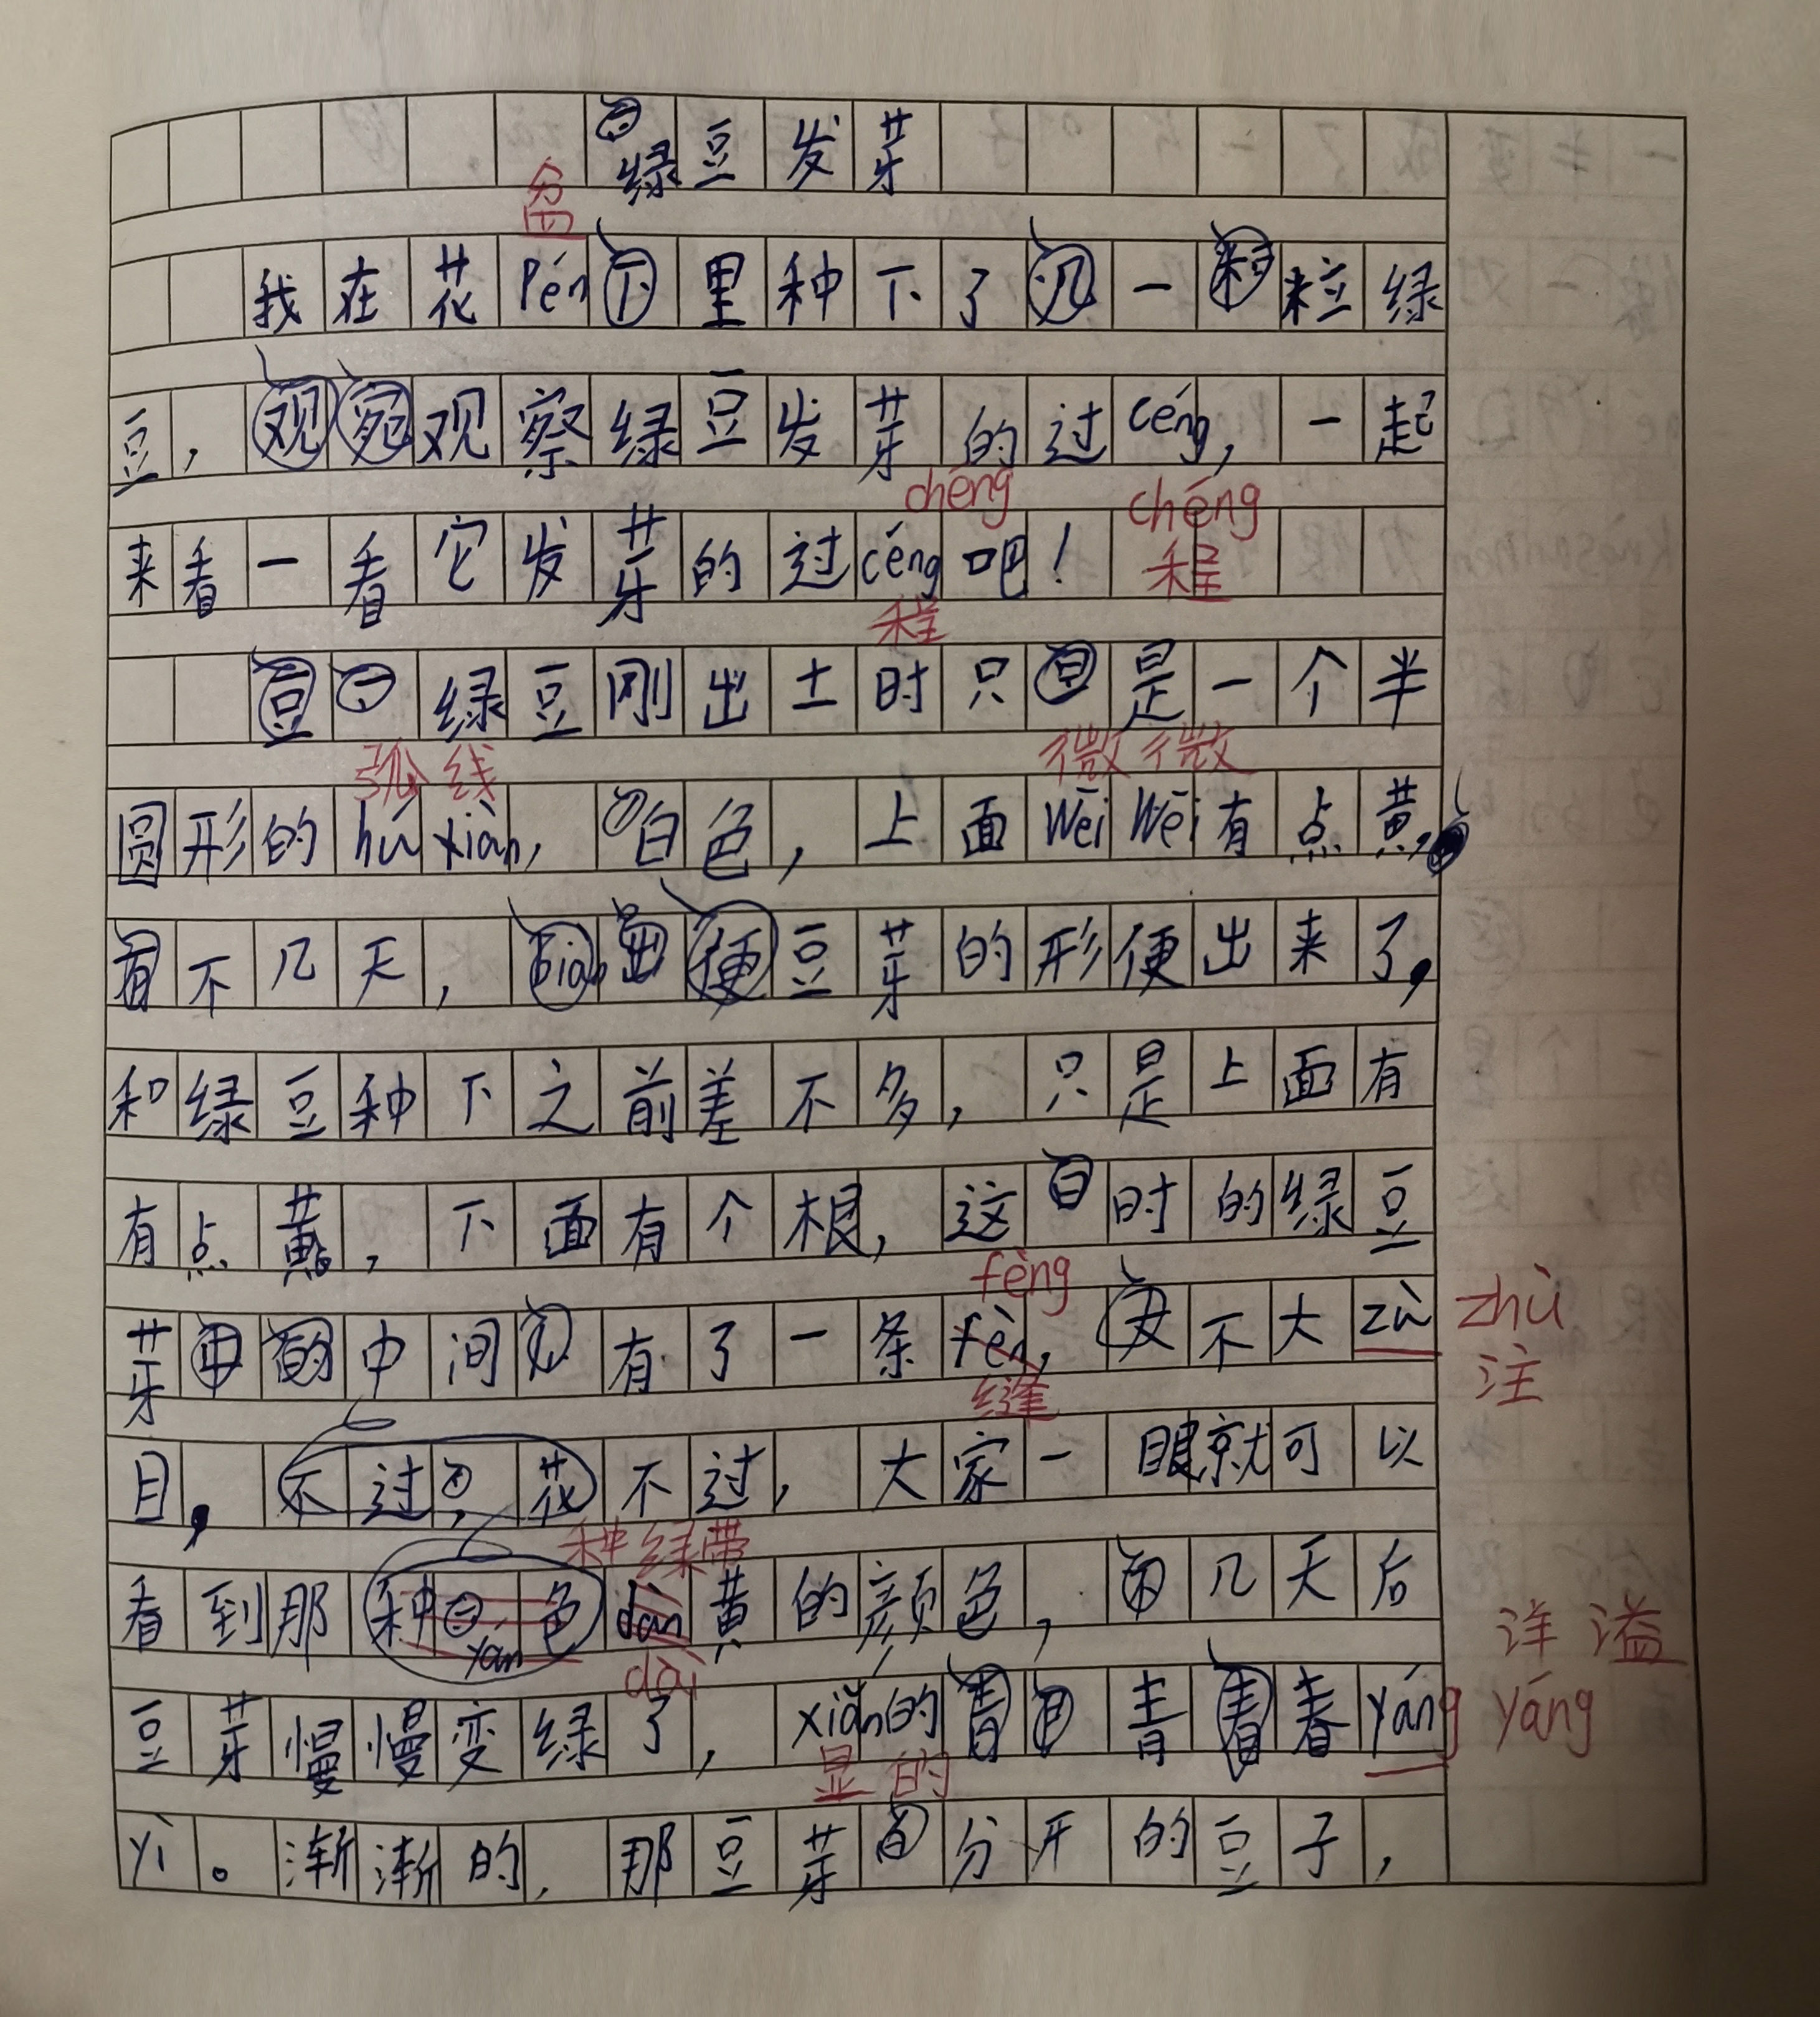 绿豆发芽
盆
我在花Pén里种下了一粒绿
豆，观察绿豆发芽的过céng，一起
chéng chéng
来看一看它发芽的过céng吧！程
程
绿豆刚出土时只是一个半
弧线 微微
圆形的hú xiàn，白色，上面Wēi Wēi有点黄，
不几天，豆芽的形便出来了，
和绿豆种下之前差不多，只是上面有
有点黄，下面有个根，这时的绿豆
fèng
芽中间有了一条fèn，不大zù zhù
缝 注
目，不过，大家一眼就可以
种绿带
看到那种色yán dàn黄的颜色，几天后
dài 洋溢
豆芽慢慢变绿了，xiǎn的青春yáng yáng
显的
yì。渐渐的，那豆芽分开的豆子，